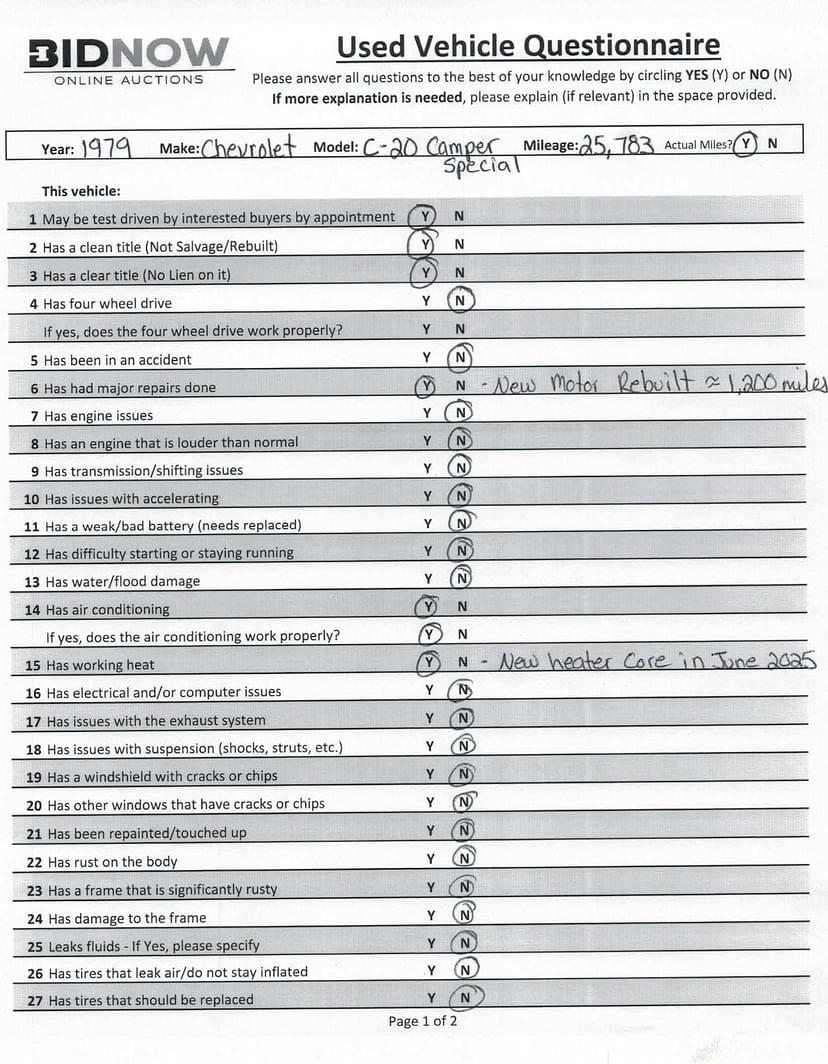 BIDNOW
ONLINE AUCTIONS
Used Vehicle Questionnaire
Please answer all questions to the best of your knowledge by circling YES (Y) or NO (N)
If more explanation is needed, please explain (if relevant) in the space provided.
Year: 1979 Make: Chevrolet Model: C-20 Camper Special Mileage: 25,783 Actual Miles? Y N
This vehicle:
1 May be test driven by interested buyers by appointment Y N
2 Has a clean title (Not Salvage/Rebuilt) Y N
3 Has a clear title (No Lien on it) Y N
4 Has four wheel drive Y N
If yes, does the four wheel drive work properly? Y N
5 Has been in an accident Y N
6 Has had major repairs done Y N - New Motor Rebuilt ≈ 1,200 miles
7 Has engine issues Y N
8 Has an engine that is louder than normal Y N
9 Has transmission/shifting issues Y N
10 Has issues with accelerating Y N
11 Has a weak/bad battery (needs replaced) Y N
12 Has difficulty starting or staying running Y N
13 Has water/flood damage Y N
14 Has air conditioning Y N
If yes, does the air conditioning work properly? Y N
15 Has working heat Y N - New heater Core in June 2025
16 Has electrical and/or computer issues Y N
17 Has issues with the exhaust system Y N
18 Has issues with suspension (shocks, struts, etc.) Y N
19 Has a windshield with cracks or chips Y N
20 Has other windows that have cracks or chips Y N
21 Has been repainted/touched up Y N
22 Has rust on the body Y N
23 Has a frame that is significantly rusty Y N
24 Has damage to the frame Y N
25 Leaks fluids - If Yes, please specify Y N
26 Has tires that leak air/do not stay inflated Y N
27 Has tires that should be replaced Y N
Page 1 of 2